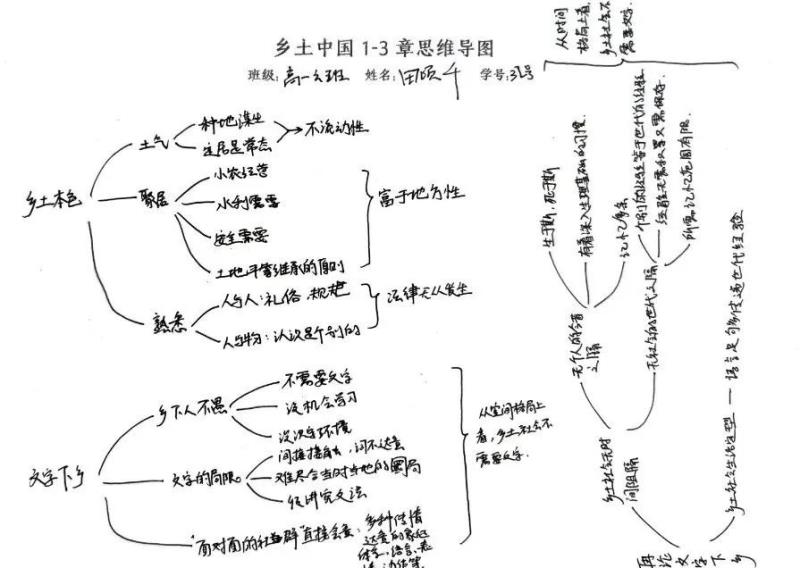 乡土中国1-3章思维导图
班级:高一六班 姓名:田颂千 学号:
乡土本色
土气
种地谋生
定居是常态
不流动性
聚居
小农经营
水利需要
安全需要
土地平等继承的原则
富于地方性
熟悉
人与人:礼俗、规矩
人与物:认识是个别的
法律无从发生
文字下乡
乡下人不愚
不需要文字
没机会学习
没识字环境
文字的局限
间接接触,词不达意
难尽合当时当地的
但讲究文法
"面对面的社群"直接会意:多种传情
达意的象征
体系,语言、表
情、动作等
从空间格局上
看,乡土社会不
需要文字.
再论文字下乡
乡土社会无时
间阻隔
无个人的今昔
之隔
生于斯,死于斯
有着深入生理基础的习惯
记忆多余
无社会的世代之隔
个别的经验等于世代的经验
经验无需积累只需保存
所需记忆范围有限
乡土社会生活定型——语言足够传递世代经验
从时间
格局上看,
乡土社会不
需要文字.